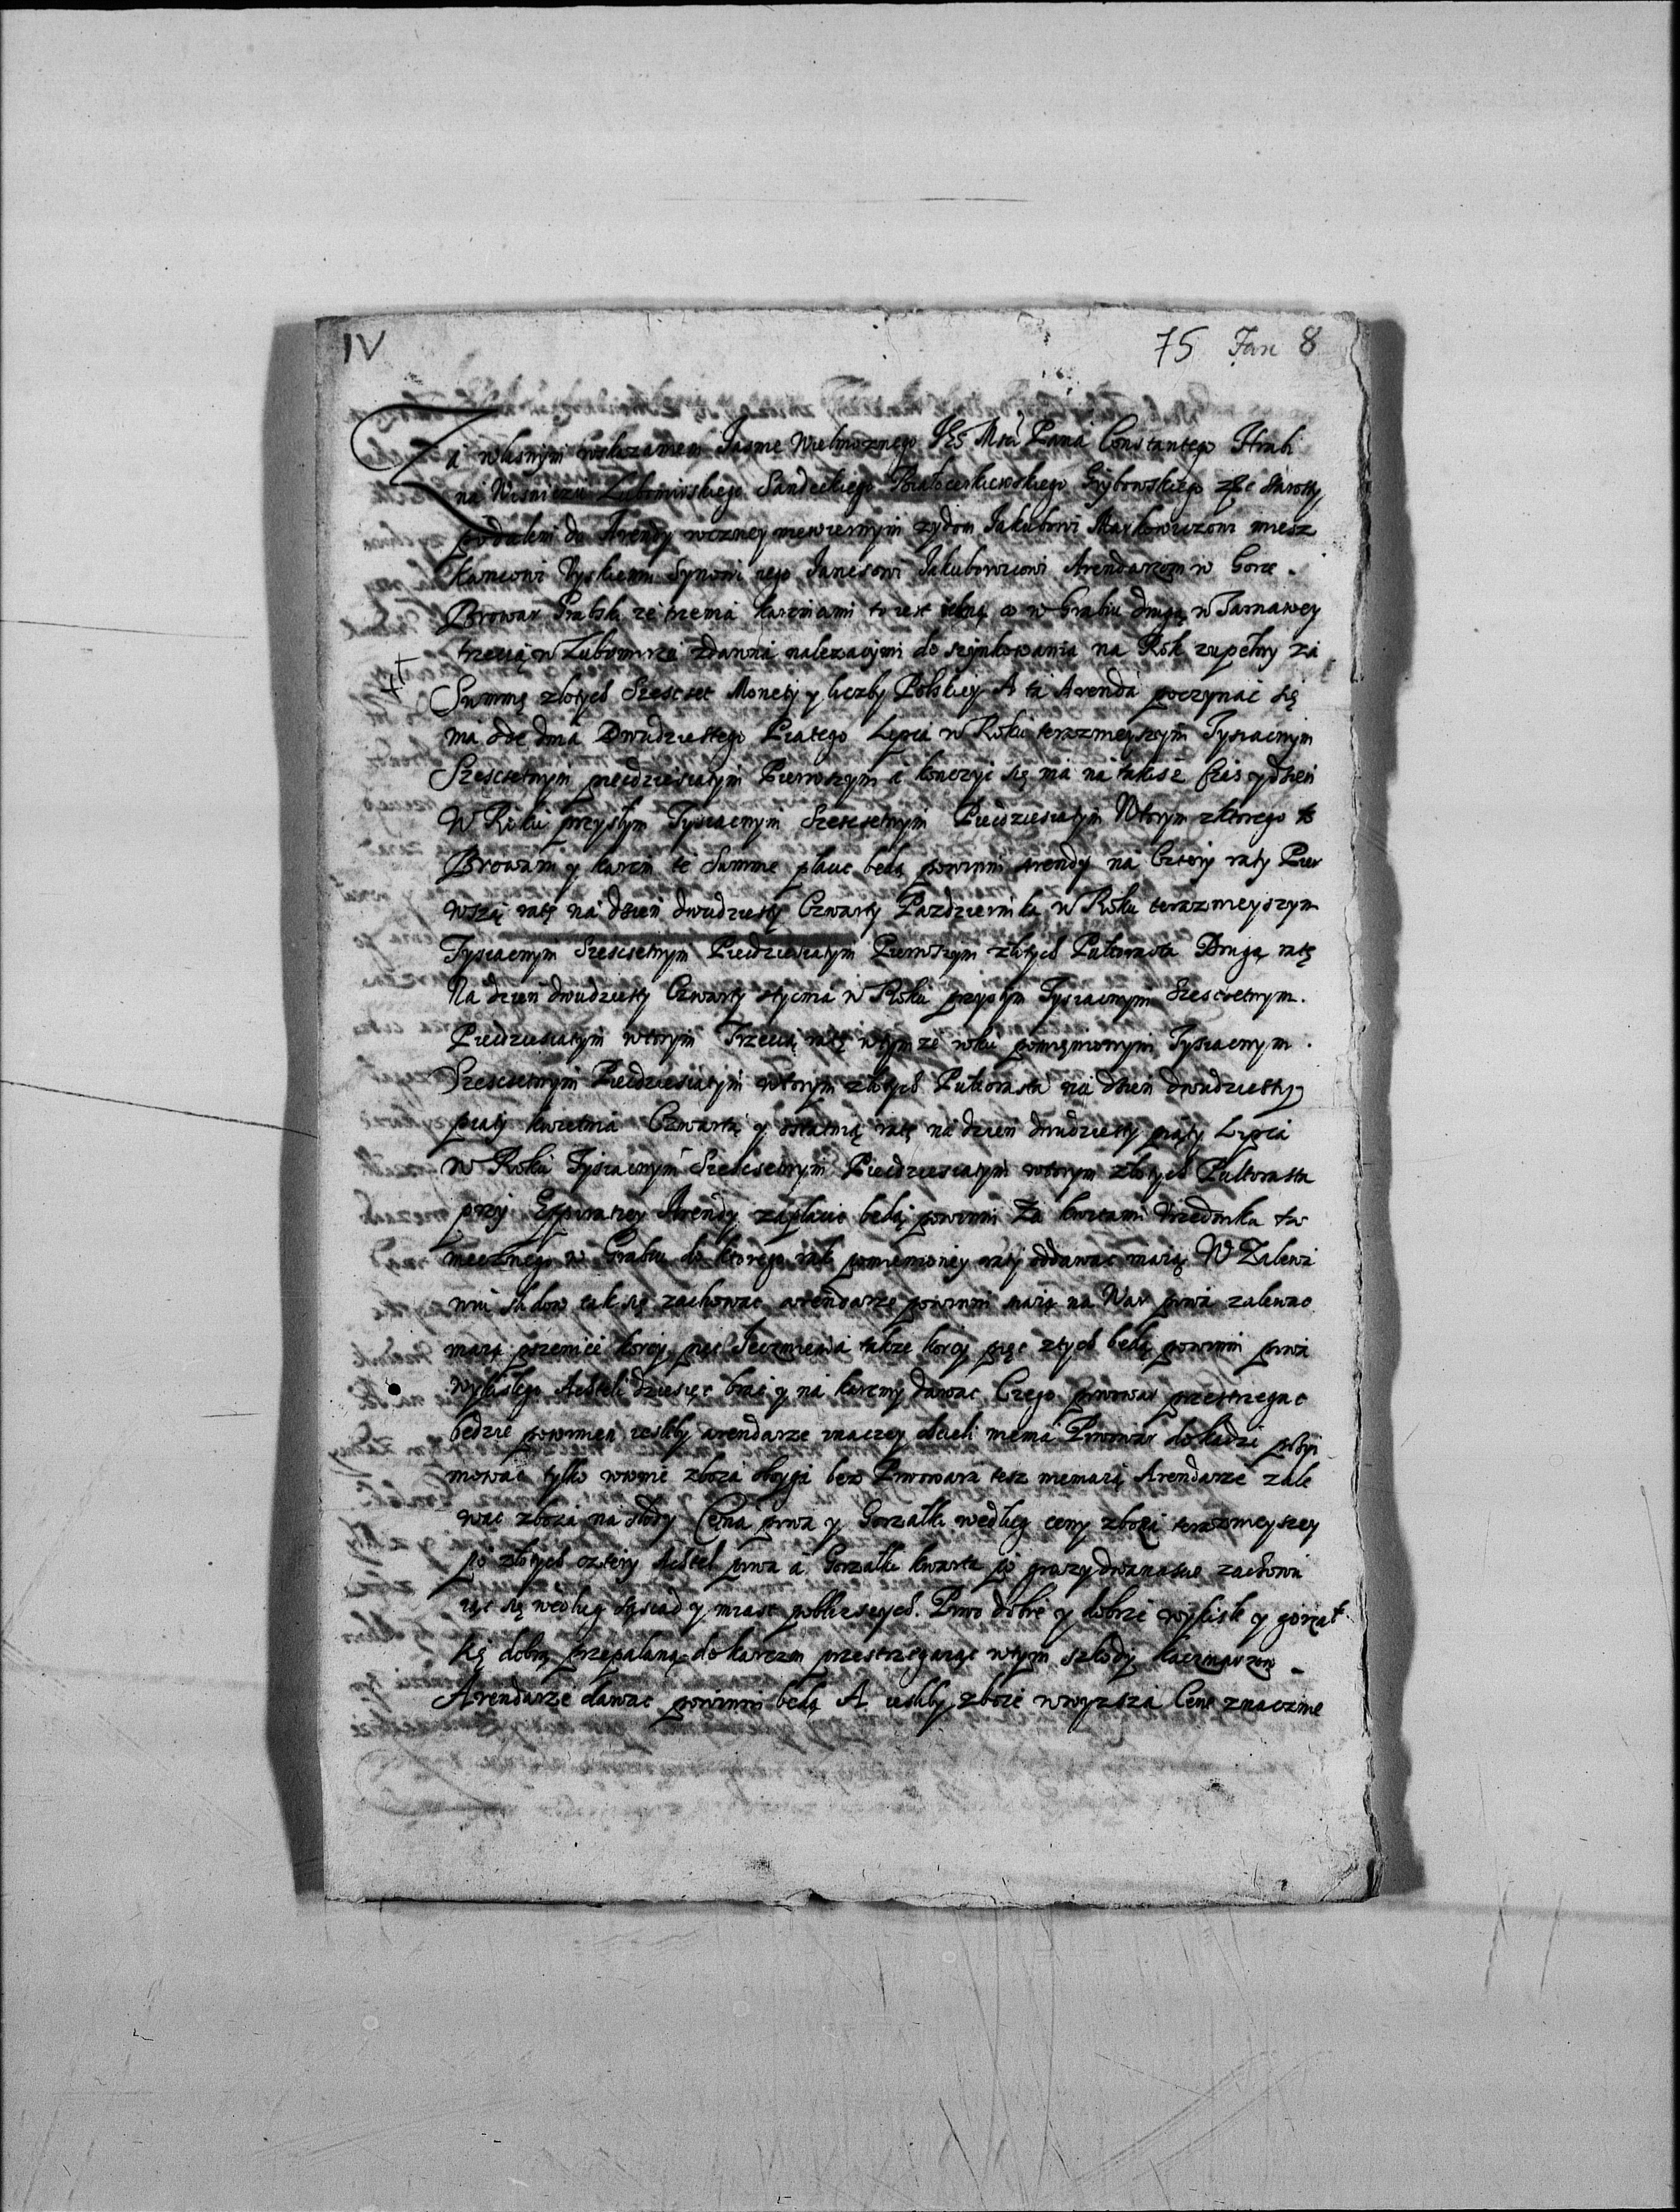 IV
75 Jan 8
Za własnym wskazaniem Jasnie Wielmoznego JE° Msci Pana Constantego Hrabi
na Wisniczu Lubomirskiego Sandeckiego Białocerkiewskiego Grybowskiego starosty
podałem do Arendy roczney niewiernym zydom Jakubowi Markowiczowi miesz
kancowi Synowi iego Janesowi Jakubowicowi Arendarzom w Gorze.
Browar Grabski ze trzema karczmami to iest iedną co w Grabiu drugą w Tarnawey
trzecią w Lubomirze zdawna nalezacymi do szynkowania na Rok zupełny za
Summę złotych Szescset Monety y liczby Polskiey A ta Arenda poczynac się
ma ode dnia Dwudziestego Piątego Lipca w Roku teraznieyszym Tysiacnym
Szescsetnym piecdziesiatym Pierwszym a konczyc się ma na takisz czas y dzien
W Roku przyszłym Tysiacnym Szescsetnym Piecdziesiatym Wtorym z ktorego to
Browaru y karcm te Summe płacic bedą powinni arendy na Cztery raty Pier
wszą ratę na dzien dwudziesty Czwarty Pazdziernika w Roku teraznieyszym
Tysiacnym Szescsetnym Piecdziesiatym Pierwszym złotych Pułtorasta Drugą ratę
Na dzien dwudziesty Czwarty stycnia w Roku przyszłym Tysiacnym Szescsetnym.
Piecdziesiatym wtorym Trzecią ratę w tymze roku pomienionym Tysiacnym.
Szescsetnym Piecdziesiatym wtorym złotych Pułtorasta na dzien dwudziesty
piąty kwietnia Czwartą y ostatnią ratę na dzien dwudziesty piąty Lipca
W Roku Tysiacnym Szescsetnym Piecdziesiatym wtorym złotych Pułtorasta
przy Expiratiey Arendy zapłacic bedą powinni Za kwitami Vrzednika ta
mecznego w Grabiu do ktorego rąk pomienioney raty oddawac maią W Zalewa
niu słodow tak się zachowac arendarze powinni maią na War piwa zalewac
maią pszenice korcy piec Jeczmienia takze korcy pięc z tych bedą powinni piwa
wystałego Achteli dziesięc brac y na karcmy dawac Czego piwowar przestrzegac
bedzie powinien iesliby arendarze inaczey chcieli niema Piwowar do kadzi przyi
mowac tylko rownie zboza oboyga bez Piwowara tesz niemaią Arendarze zale
wac zboza na słody Cena piwa y Gorzałki według ceny zboza terazniejszey
po złotych cztery Achtel piwa a Gorzałki kwarta po groszy dwanascie zachowu
iąc się według sąsiad y miast pobliszszych. Piwo dobre y dobrze wystałe y gorzał
kę dobrą przepalaną do karczm przestrzegaiąc w tym szkody karczmarzow
Arendarze dawac powinni bedą A iesliby zboze w wyzsza Cene znacznie